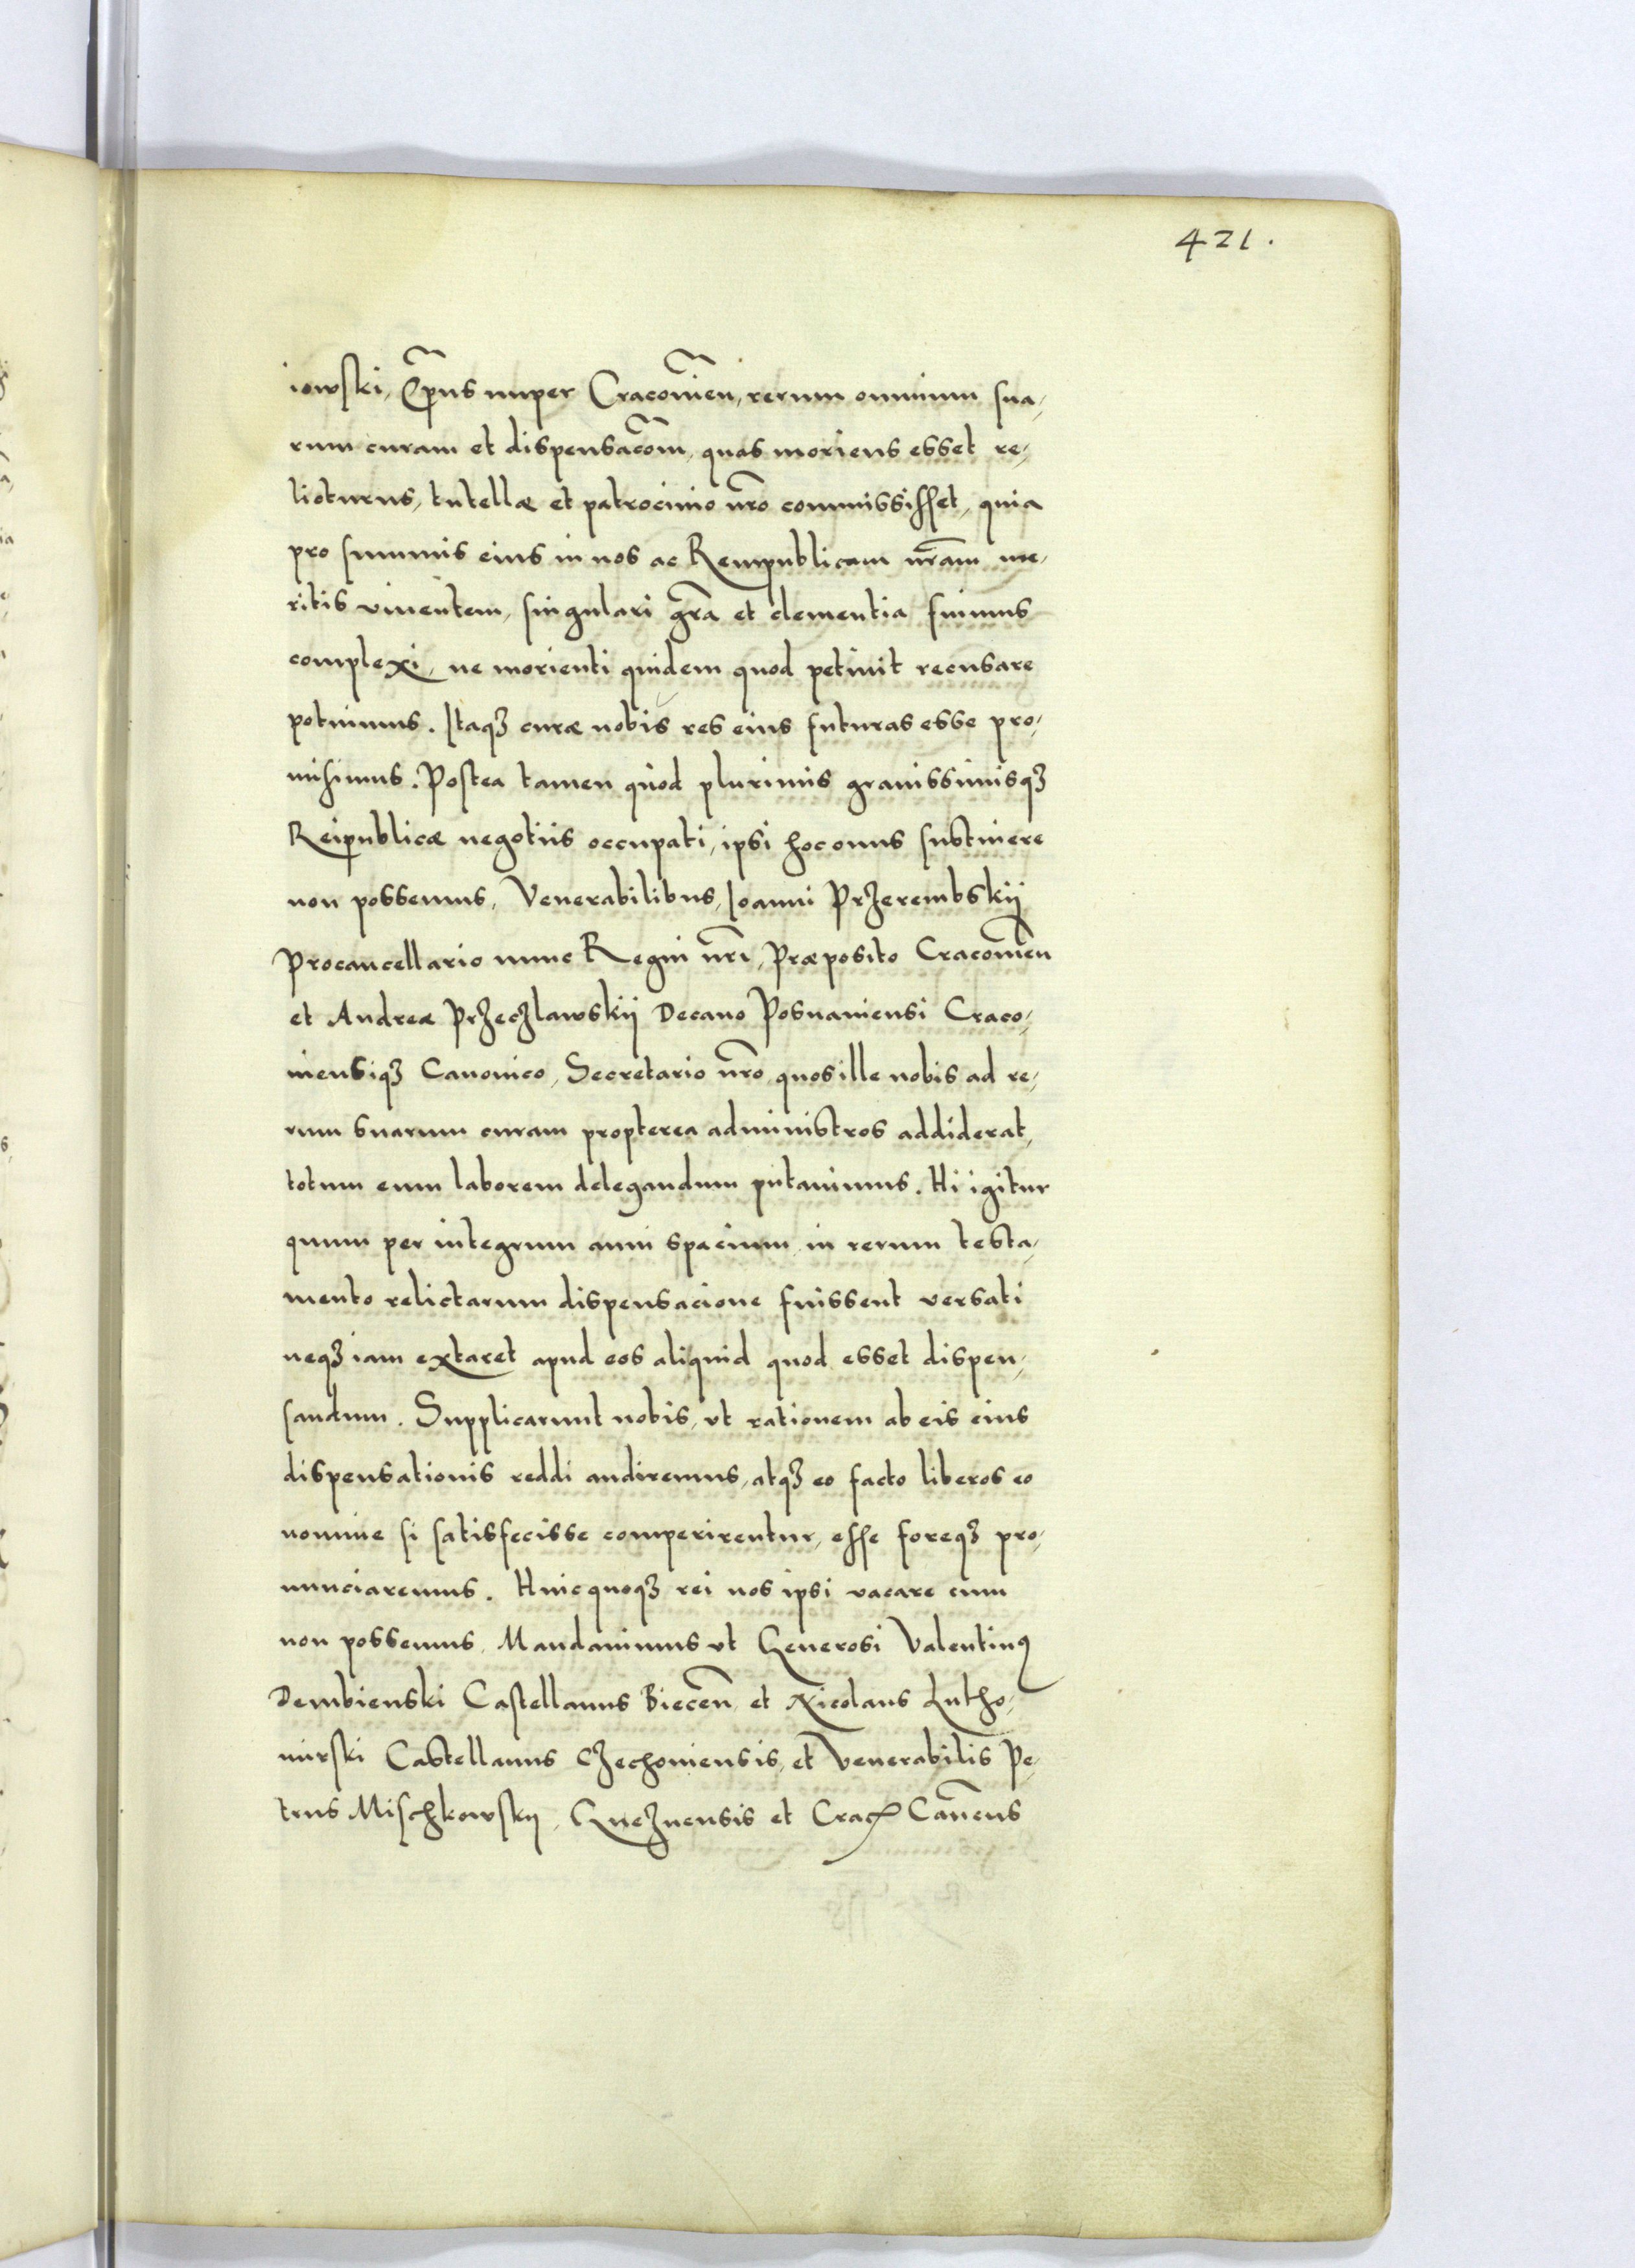 421.
iowski, Ep̃us nuper Cracovien̄, rerum omnium sua,
rum curam et dispensacõm, quas moriens esset re,
licturus, tutellæ et patrocinio nr̃o commississet, quia
pro summis eius in nos ac Rempublicam nr̃am me,
ritis viventem, singulari gr̃a et clementia fuimus
complexi, ne morienti quidem quod petivit recusare
potuimus. Itaqꝫ curæ nobis res eius futuras esse pro,
misimus. Postea tamen quod plurimis gravissimisqꝫ
Reipublicæ negotiis occupati, ipsi hoc onus sustinere
non possemus, Venerabilibus, Ioanni Przerembskij
Procancellario nunc Regni nr̃i, Præposito Cracovien̄
et Andreæ Przeczlawskij Decano Posnaniensi Craco,
viensiqꝫ Canonico, Secretario nr̃o, quos ille nobis ad re,
rum suarum curam propterea administros addiderat,
totum eum laborem delegandum putavimus. Hi igitur
quum per integrum anni spacium, in rerum testa,
mento relictarum dispensacione fuissent versati
neqꝫ iam extaret apud eos aliquid quod esset dispen,
sandum. Supplicarunt nobis, ut rationem ab eis eius
dispensationis reddi audiremus, atqꝫ eo facto liberos eo
nomine si satisfecisse comperirentur, esse foreqꝫ pro,
nunciaremus. Huic quoqꝫ rei nos ipsi vacare cum
non possemus, Mandavimus ut Generosi Valentinꝰ
Dembienski Castellanus Biecen̄, et Nicolaus Lutho,
mirski Castellanus Czechoviensis, et Venerabilis Pe,
trus Mischkowskij, Gneznensis et Crac̃ Can̄eus